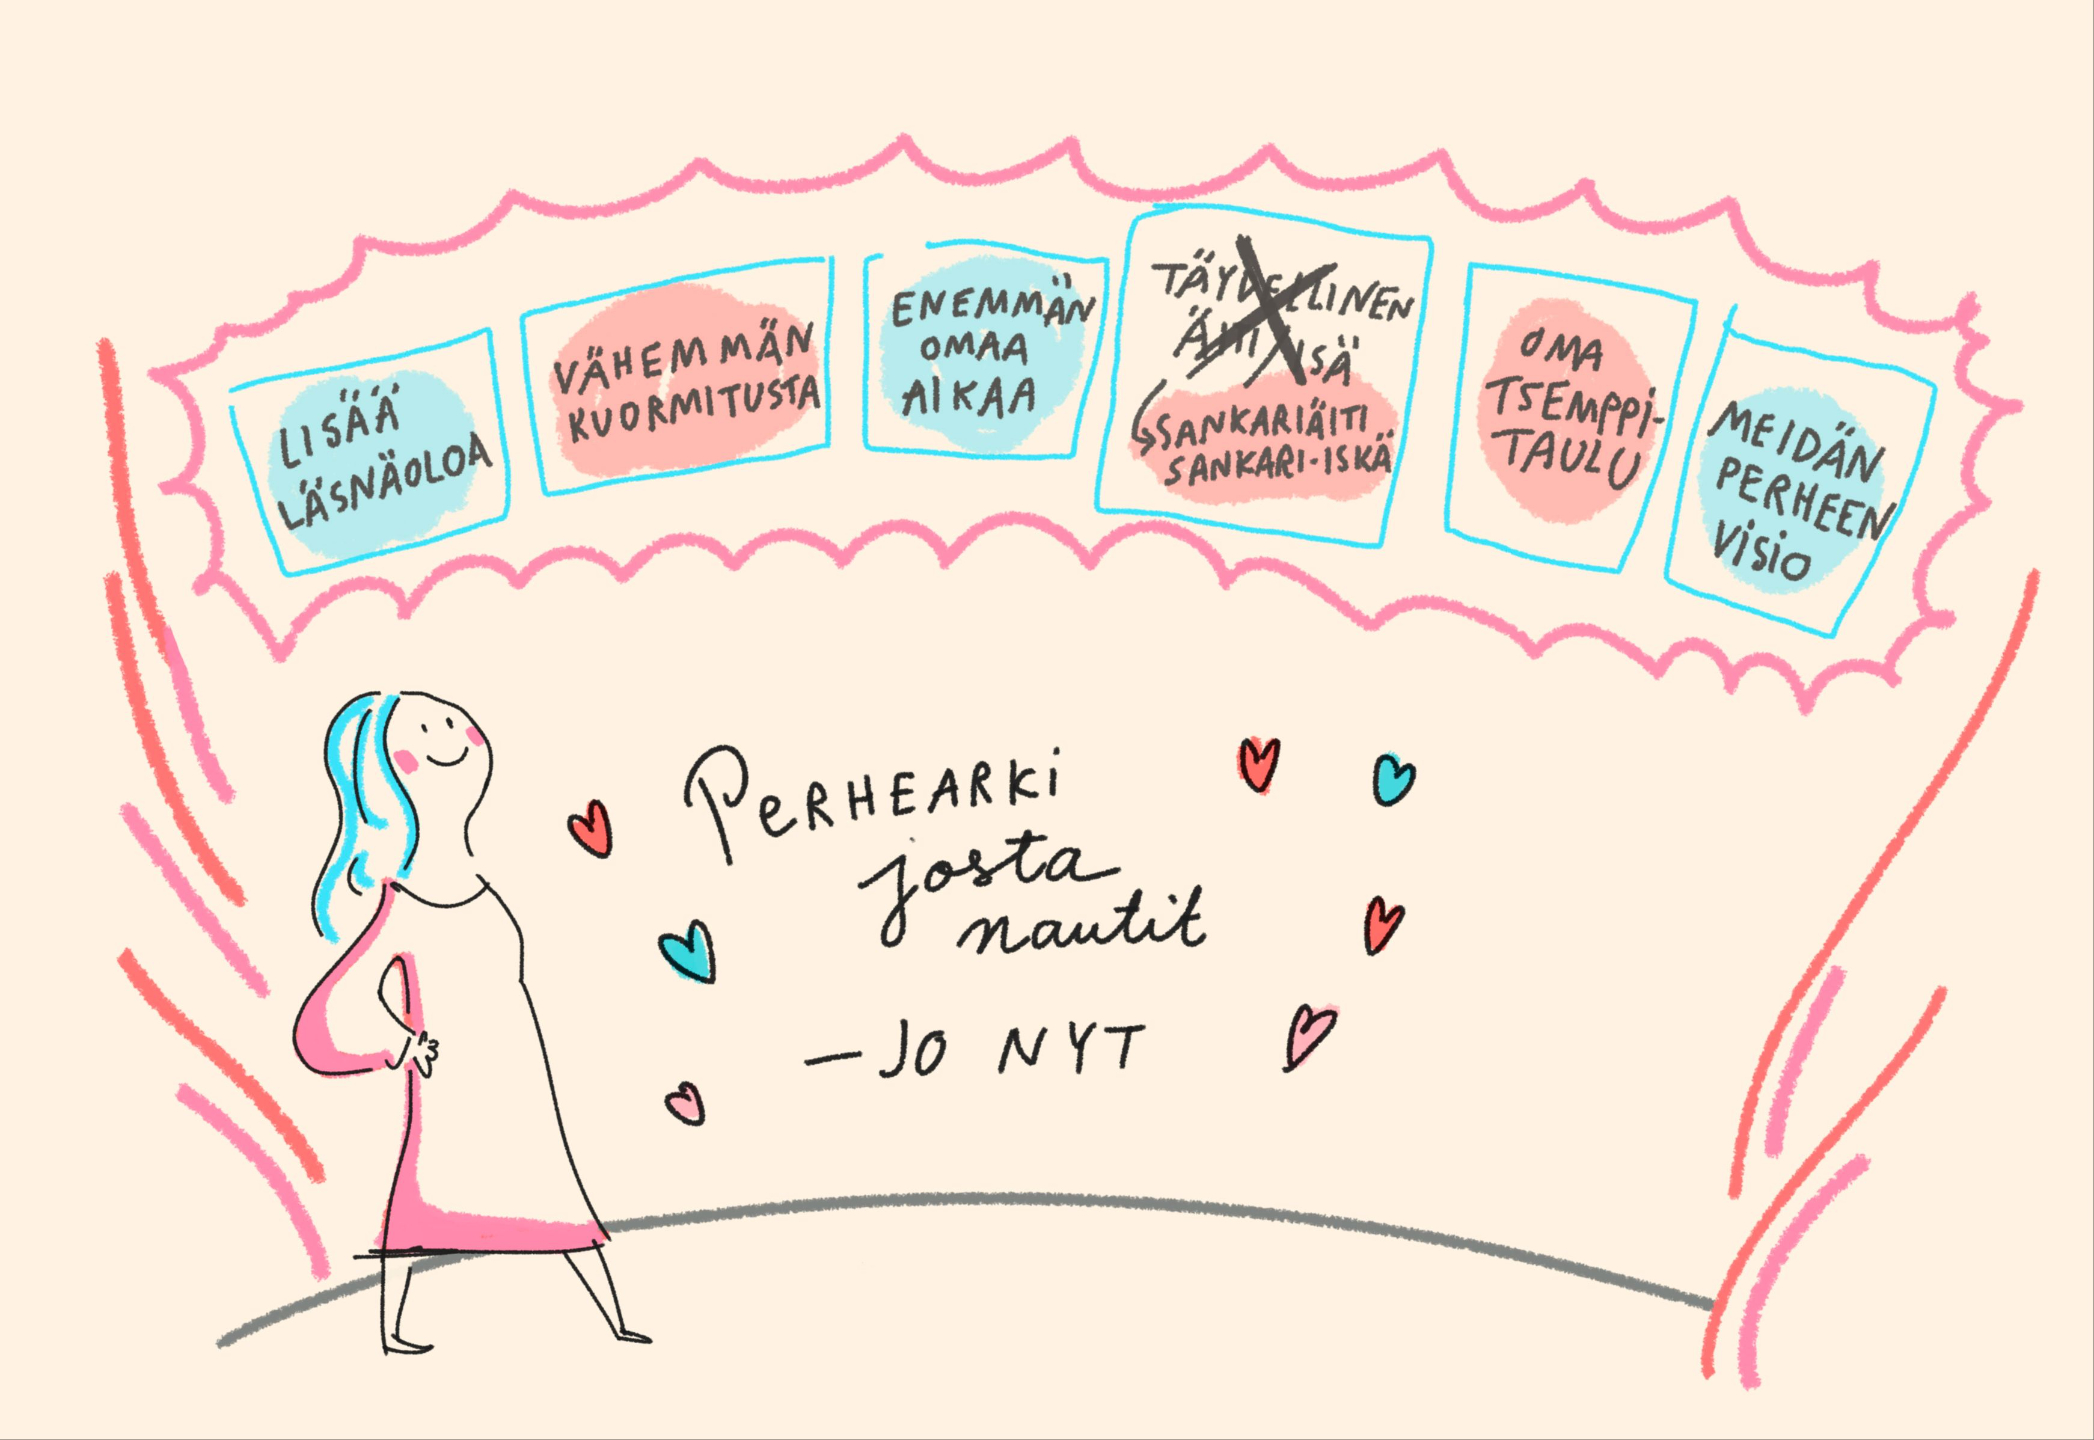 LISÄÄ
LÄSNÄOLOA
VÄHEMMÄN
KUORMITUSTA
ENEMMÄN
OMAA
AIKAA
TÄYDELLINEN
ÄITI / ISÄ
SANKARIÄITI
SANKARI-ISKÄ
OMA
TSEMPPI-
TAULU
MEIDÄN
PERHEEN
VISIO
PERHEARKI
josta
nautit
– JO NYT